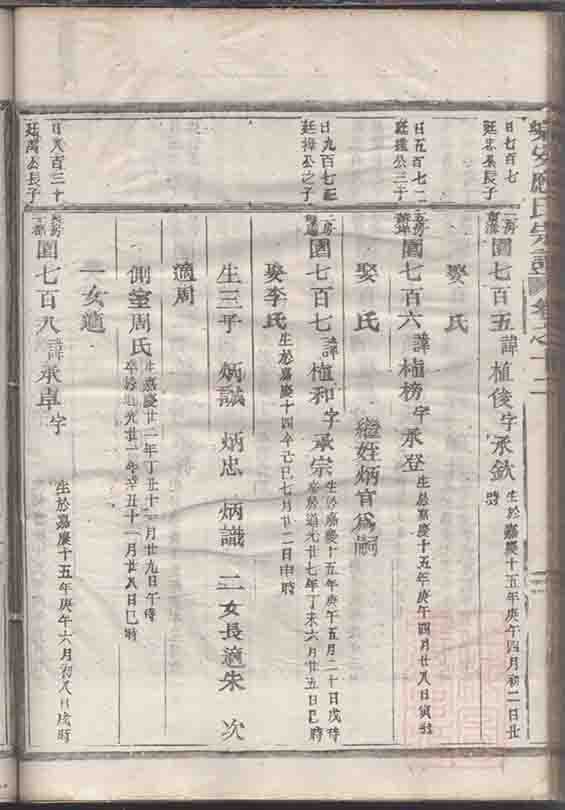 應氏宗譜 卷之十二
日七百七
廷忠公長子
園七百五諱植俊字承欽 生於嘉慶十五年庚午四月初二日丑時
娶 氏
日五百七二
公三子
園七百六諱植榜字承登 生於嘉慶十五年庚午四月廿八日寅時
娶 氏 繼姪炳官為嗣
日九百七
廷 公之子
園七百七諱植和字承宗 生於嘉慶十五年庚午五月二十日戌時
卒於道光廿七年丁未六月廿五日巳時
娶李氏 生於嘉慶十四年己巳七月廿二日申時
生三子 炳誠 炳忠 炳識 二女長適朱 次
適周
側室周氏 生嘉慶廿二年丁丑十一月廿九日午時
卒於 光廿一年辛丑十一月廿八日巳時
一女適
日八百三十
廷萬公長子
園七百八諱承卓字 生於嘉慶十五年庚午六月初八日戌時